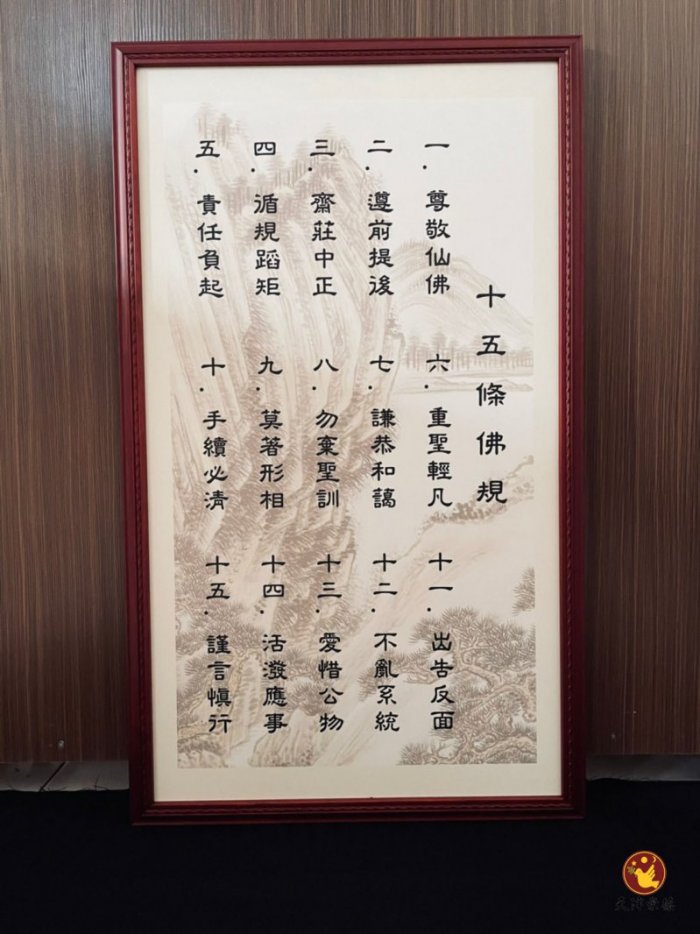 十五條佛規
一．尊敬仙佛
二．遵前提後
三．齋莊中正
四．循規蹈矩
五．責任負起
六．重聖輕凡
七．謙恭和藹
八．勿棄聖訓
九．莫著形相
十．手續必清
十一．出告反面
十二．不亂系統
十三．愛惜公物
十四．活潑應事
十五．謹言慎行